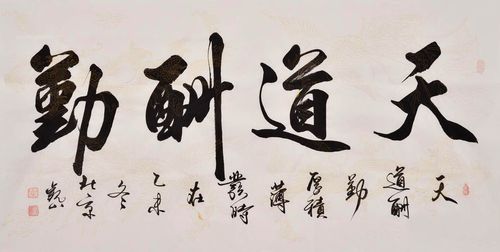 天道酬勤
天
道酬
勤
厚積
薄
發時
在
乙未
冬
北京